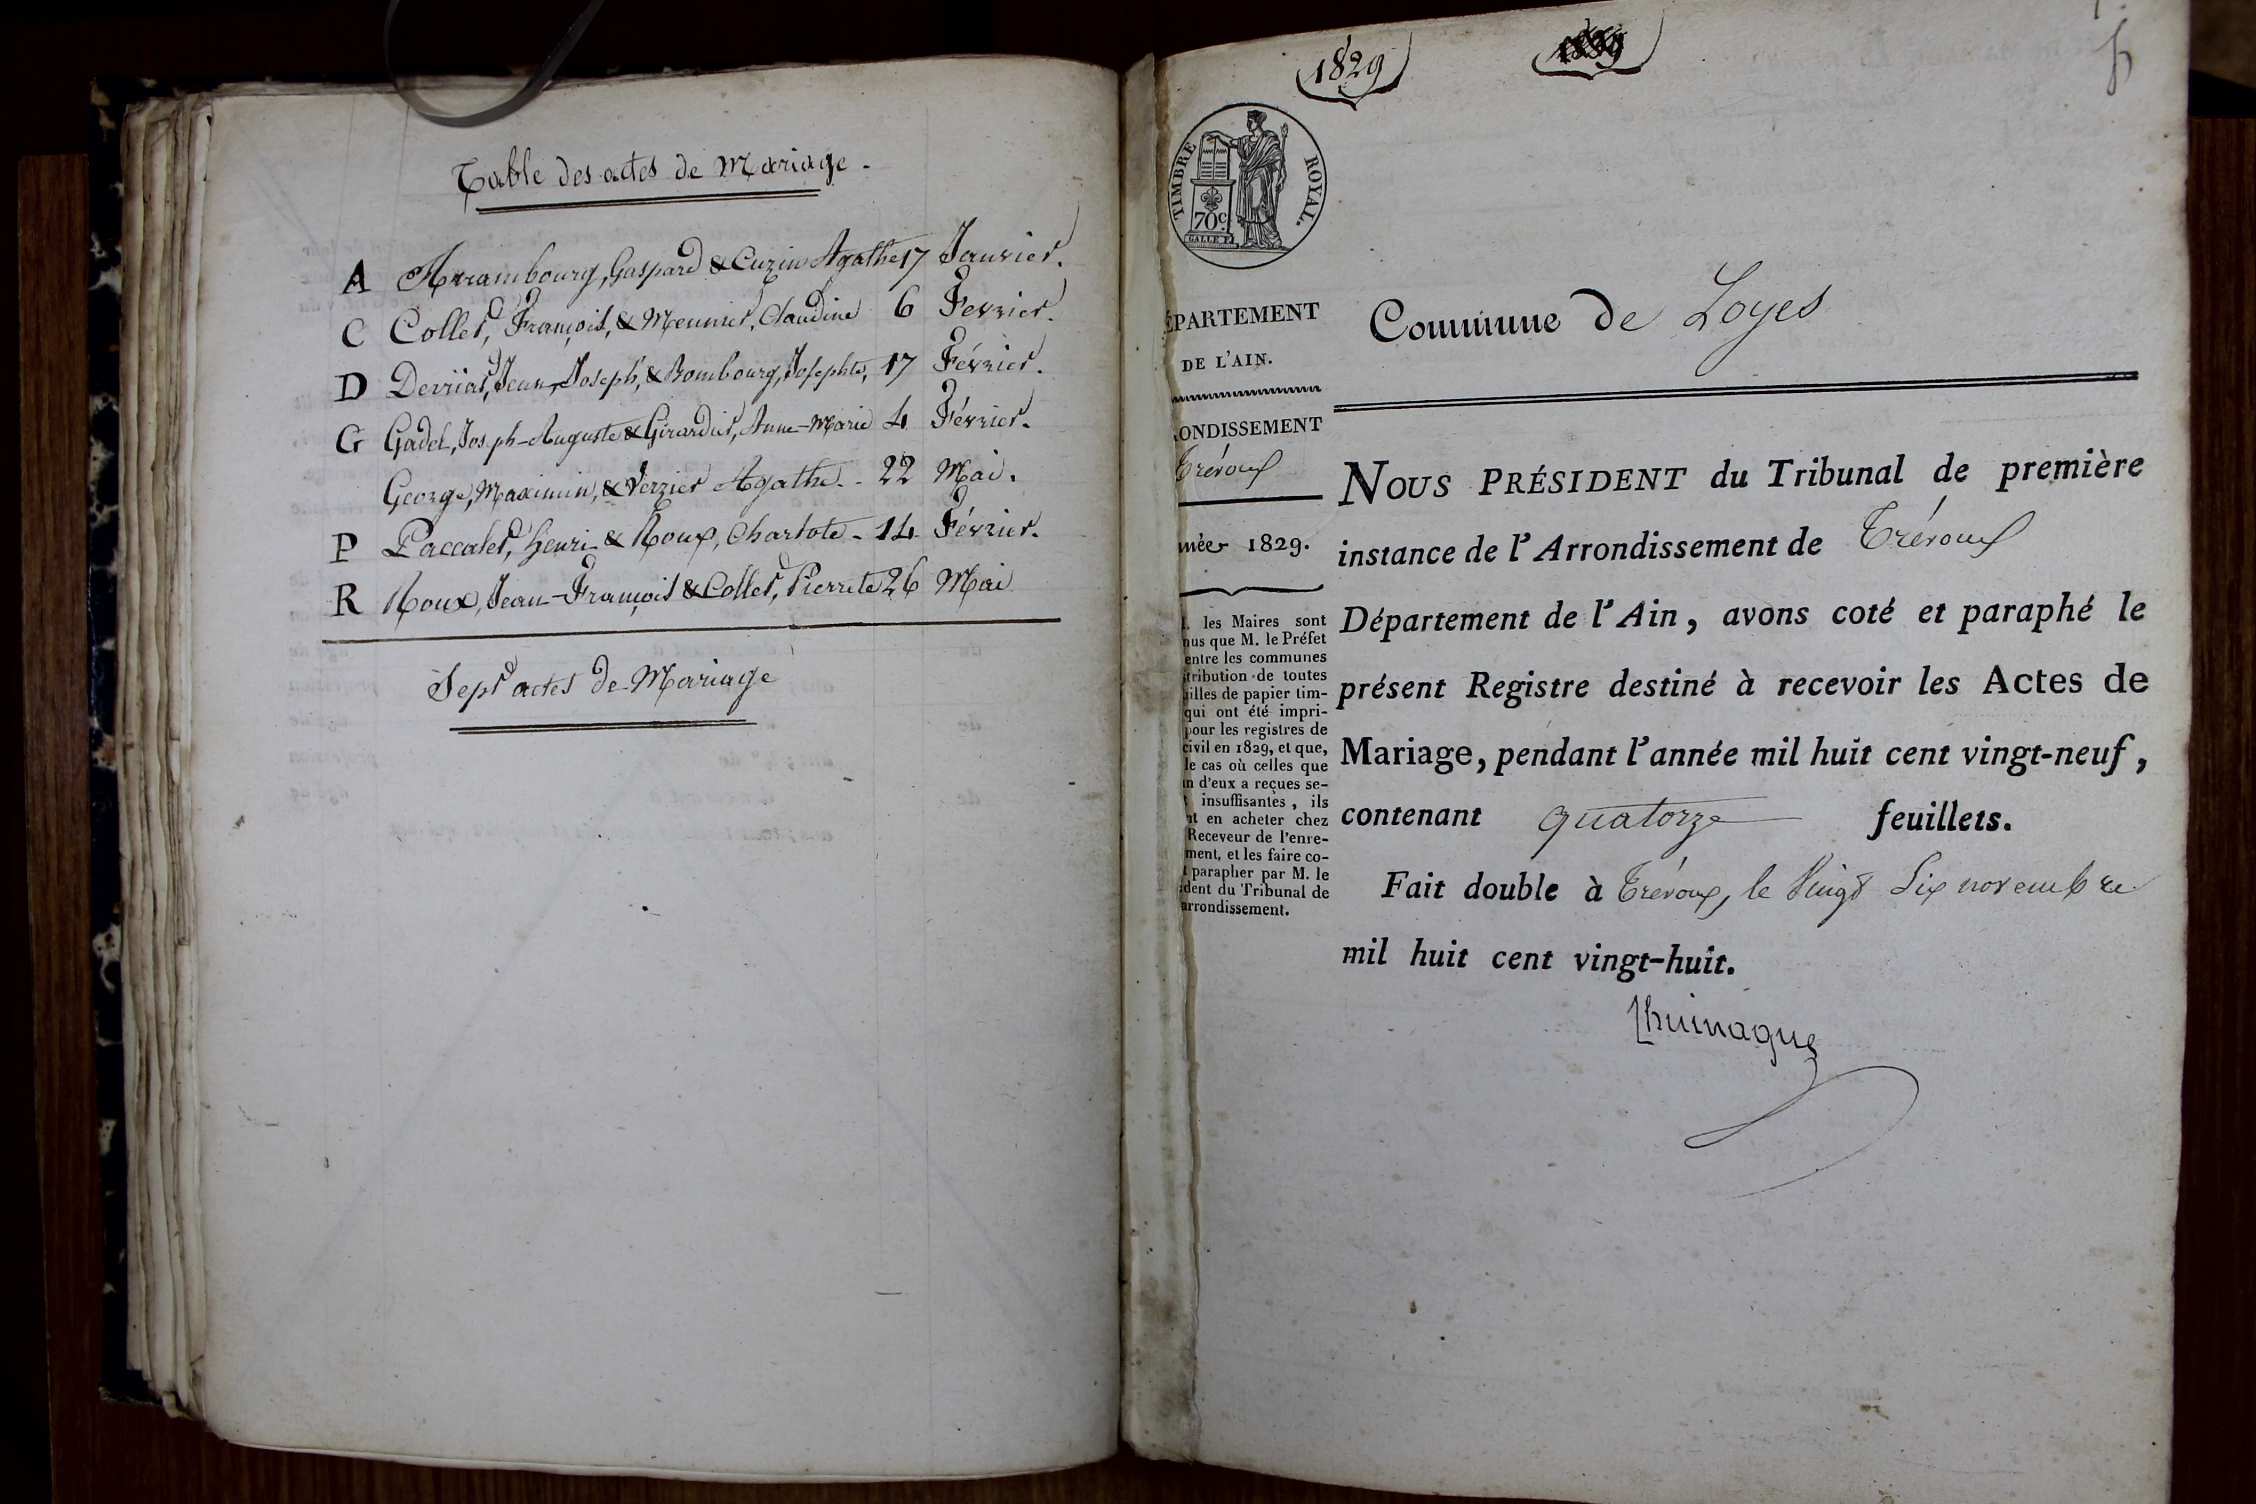 Table des actes de Mariage -
A Arrambourg, Gaspard & Cuzin Agathe 17 Janvier.
C Collet, François, & Meunier, Claudine 6 Fevrier.
D Derrias, Jean-Joseph, & Bombourg, Josephte, 17 Février.
G Gadel, Joseph-Auguste & Girardier, Anne-Marie 4 Février.
George, Maximin, & Verzier Agathe - 22 Mai.
P Paccalet, Henri & Roux, Charlote - 14 Février.
R Roux, Jean-François & Collet, Pierrete 26 Mai
Sept actes de Mariage
1829
1829
TIMBRE ROYAL.
70c.
GALLE F.
ÉPARTEMENT
DE L'AIN.
ONDISSEMENT
Trévoux
née 1829.
les Maires sont
nus que M. le Préfet
entre les communes
tribution de toutes
uilles de papier tim-
qui ont été impri-
pour les registres de
civil en 1829, et que,
le cas où celles que
un d'eux a reçues se-
t insuffisantes, ils
nt en acheter chez
Receveur de l'enre-
ment, et les faire co-
t parapher par M. le
ident du Tribunal de
arrondissement.
Commune de Loyes
NOUS PRÉSIDENT du Tribunal de première
instance de l'Arrondissement de Trévoux
Département de l'Ain, avons coté et paraphé le
présent Registre destiné à recevoir les Actes de
Mariage, pendant l'année mil huit cent vingt-neuf,
contenant quatorze feuillets.
Fait double à Trévoux, le Vingt Six novembre
mil huit cent vingt-huit.